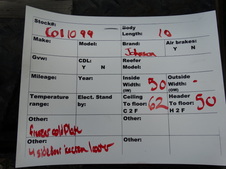 Stock#: Body
Length: 10
Make: Model: Brand: Johnson Air brakes:
Y N
Gvw: CDL:
Y N Reefer
Model:
Mileage: Year: Inside
Width: 90
(IW) Outside
Width: -
(OW)
Temperature
range: Elect. Stand
by: Ceiling
To floor: 62
C 2 F Header
To floor: 50
H 2 F
Other: Other: Other:
Freezer cold Plate
Other: Other: